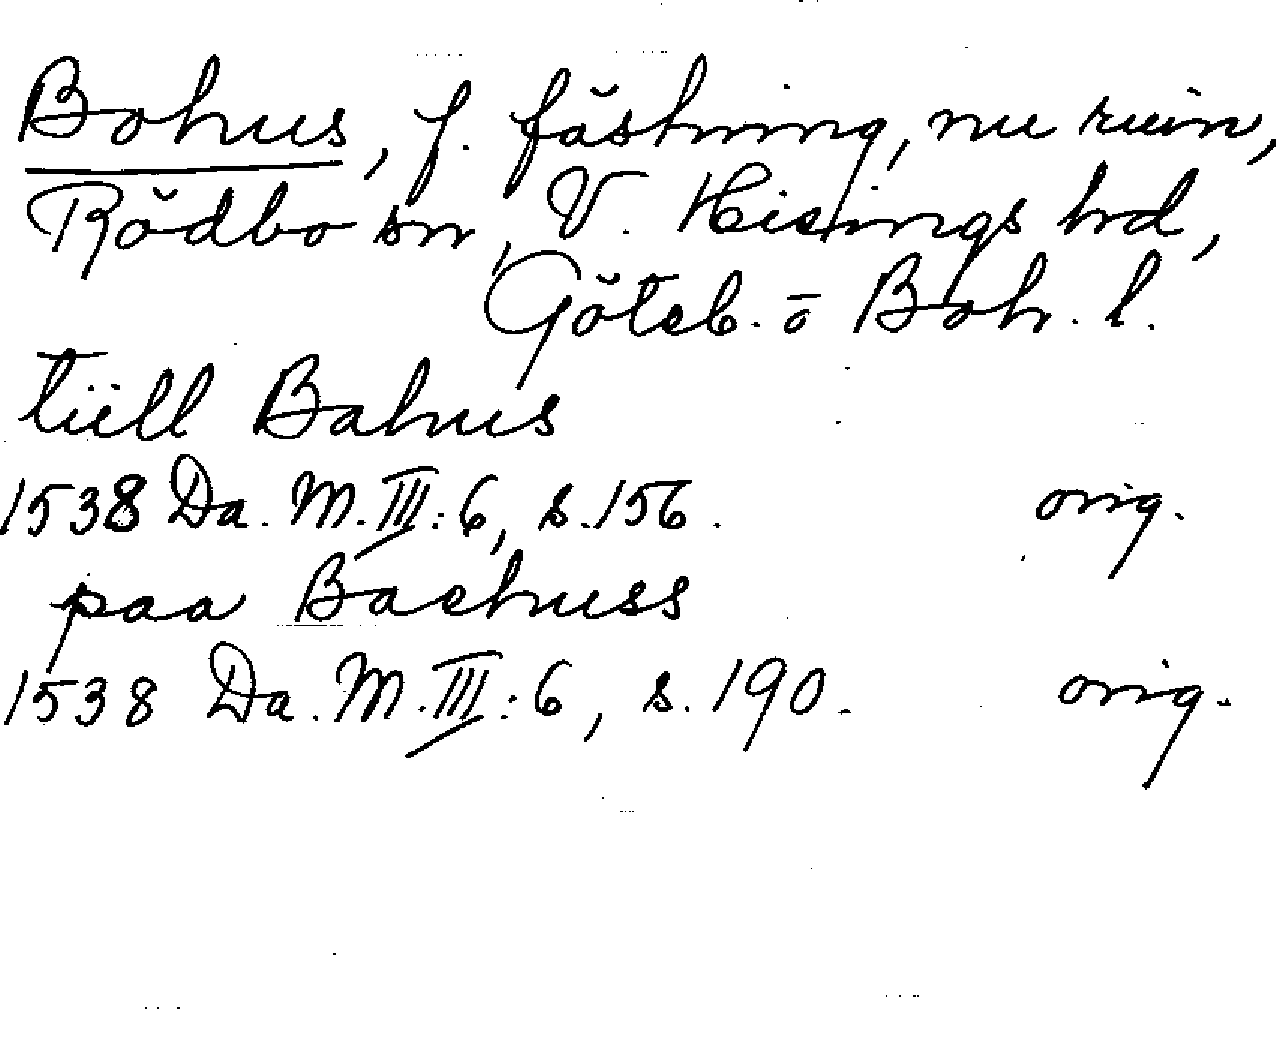 Bohus, f. fästning, nu ruin,
Rödbo sn, V. Hisings hrd,
Göteb. o Boh. l.
tiill Bahus
1538 Da. M. III: 6, s. 156. orig.
paa Baehuss
1538 Da. M. III: 6, s. 190. orig.